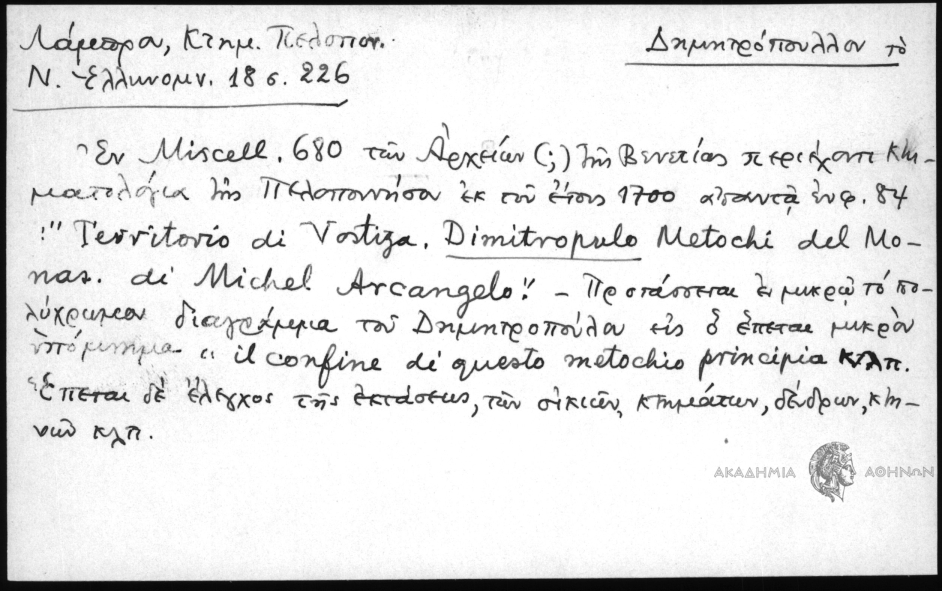 Λάμπρου, Κτημ. Πελοπον. Δημητρόπουλλον τὸ
Ν. Ἑλληνομν. 18 σ. 226
Ἐν Miscell. 680 τῶν Ἀρχείων (;) τῆς Βενετίας περιέχοντι κτη-
ματολόγια τῆς Πελοποννήσου ἐκ τοῦ ἔτους 1700 ἀπαντᾷ ἐν φ. 84
:" Territorio di Vostiza. Dimitropulo Metochi del Mo-
nas. di Michel Arcangelo". – Προτάσσεται ἐν μικρῷ τὸ πο-
λύχρωμον διαγράμμα τοῦ Δημητροπούλου εἰς ὃ ἕπεται μικρὸν
ὑπόμνημα " il confine di questo metochio principia κτλπ.
Ἕπεται δὲ ἔλεγχος τῆς ἐκτάσεως, τῶν οἰκιῶν, κτημάτων, δένδρων, κτη-
νῶν κλπ.
ΑΚΑΔΗΜΙΑ ΑΘΗΝΩΝ